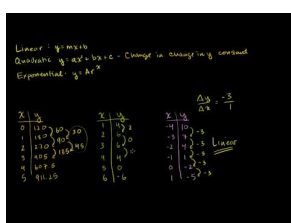 Linear: y=mx+b
Quadratic y=ax²+bx+c - Change in change in y constant
Exponential: y=Ar^x
Δy/Δx = -3/1
x | y
0 | 120
1 | 180
2 | 270
3 | 405
4 | 607.5
5 | 911.25
60
90
135
30
45
x | y
1 | 4
2 | 6
3 | 6
4 | 4
5 | 0
6 | -6
2
0
x | y
-4 | 10
-3 | 7
-2 | 4
-1 | 1
0 | -2
1 | -5
-3
-3
-3
-3
-3
Linear